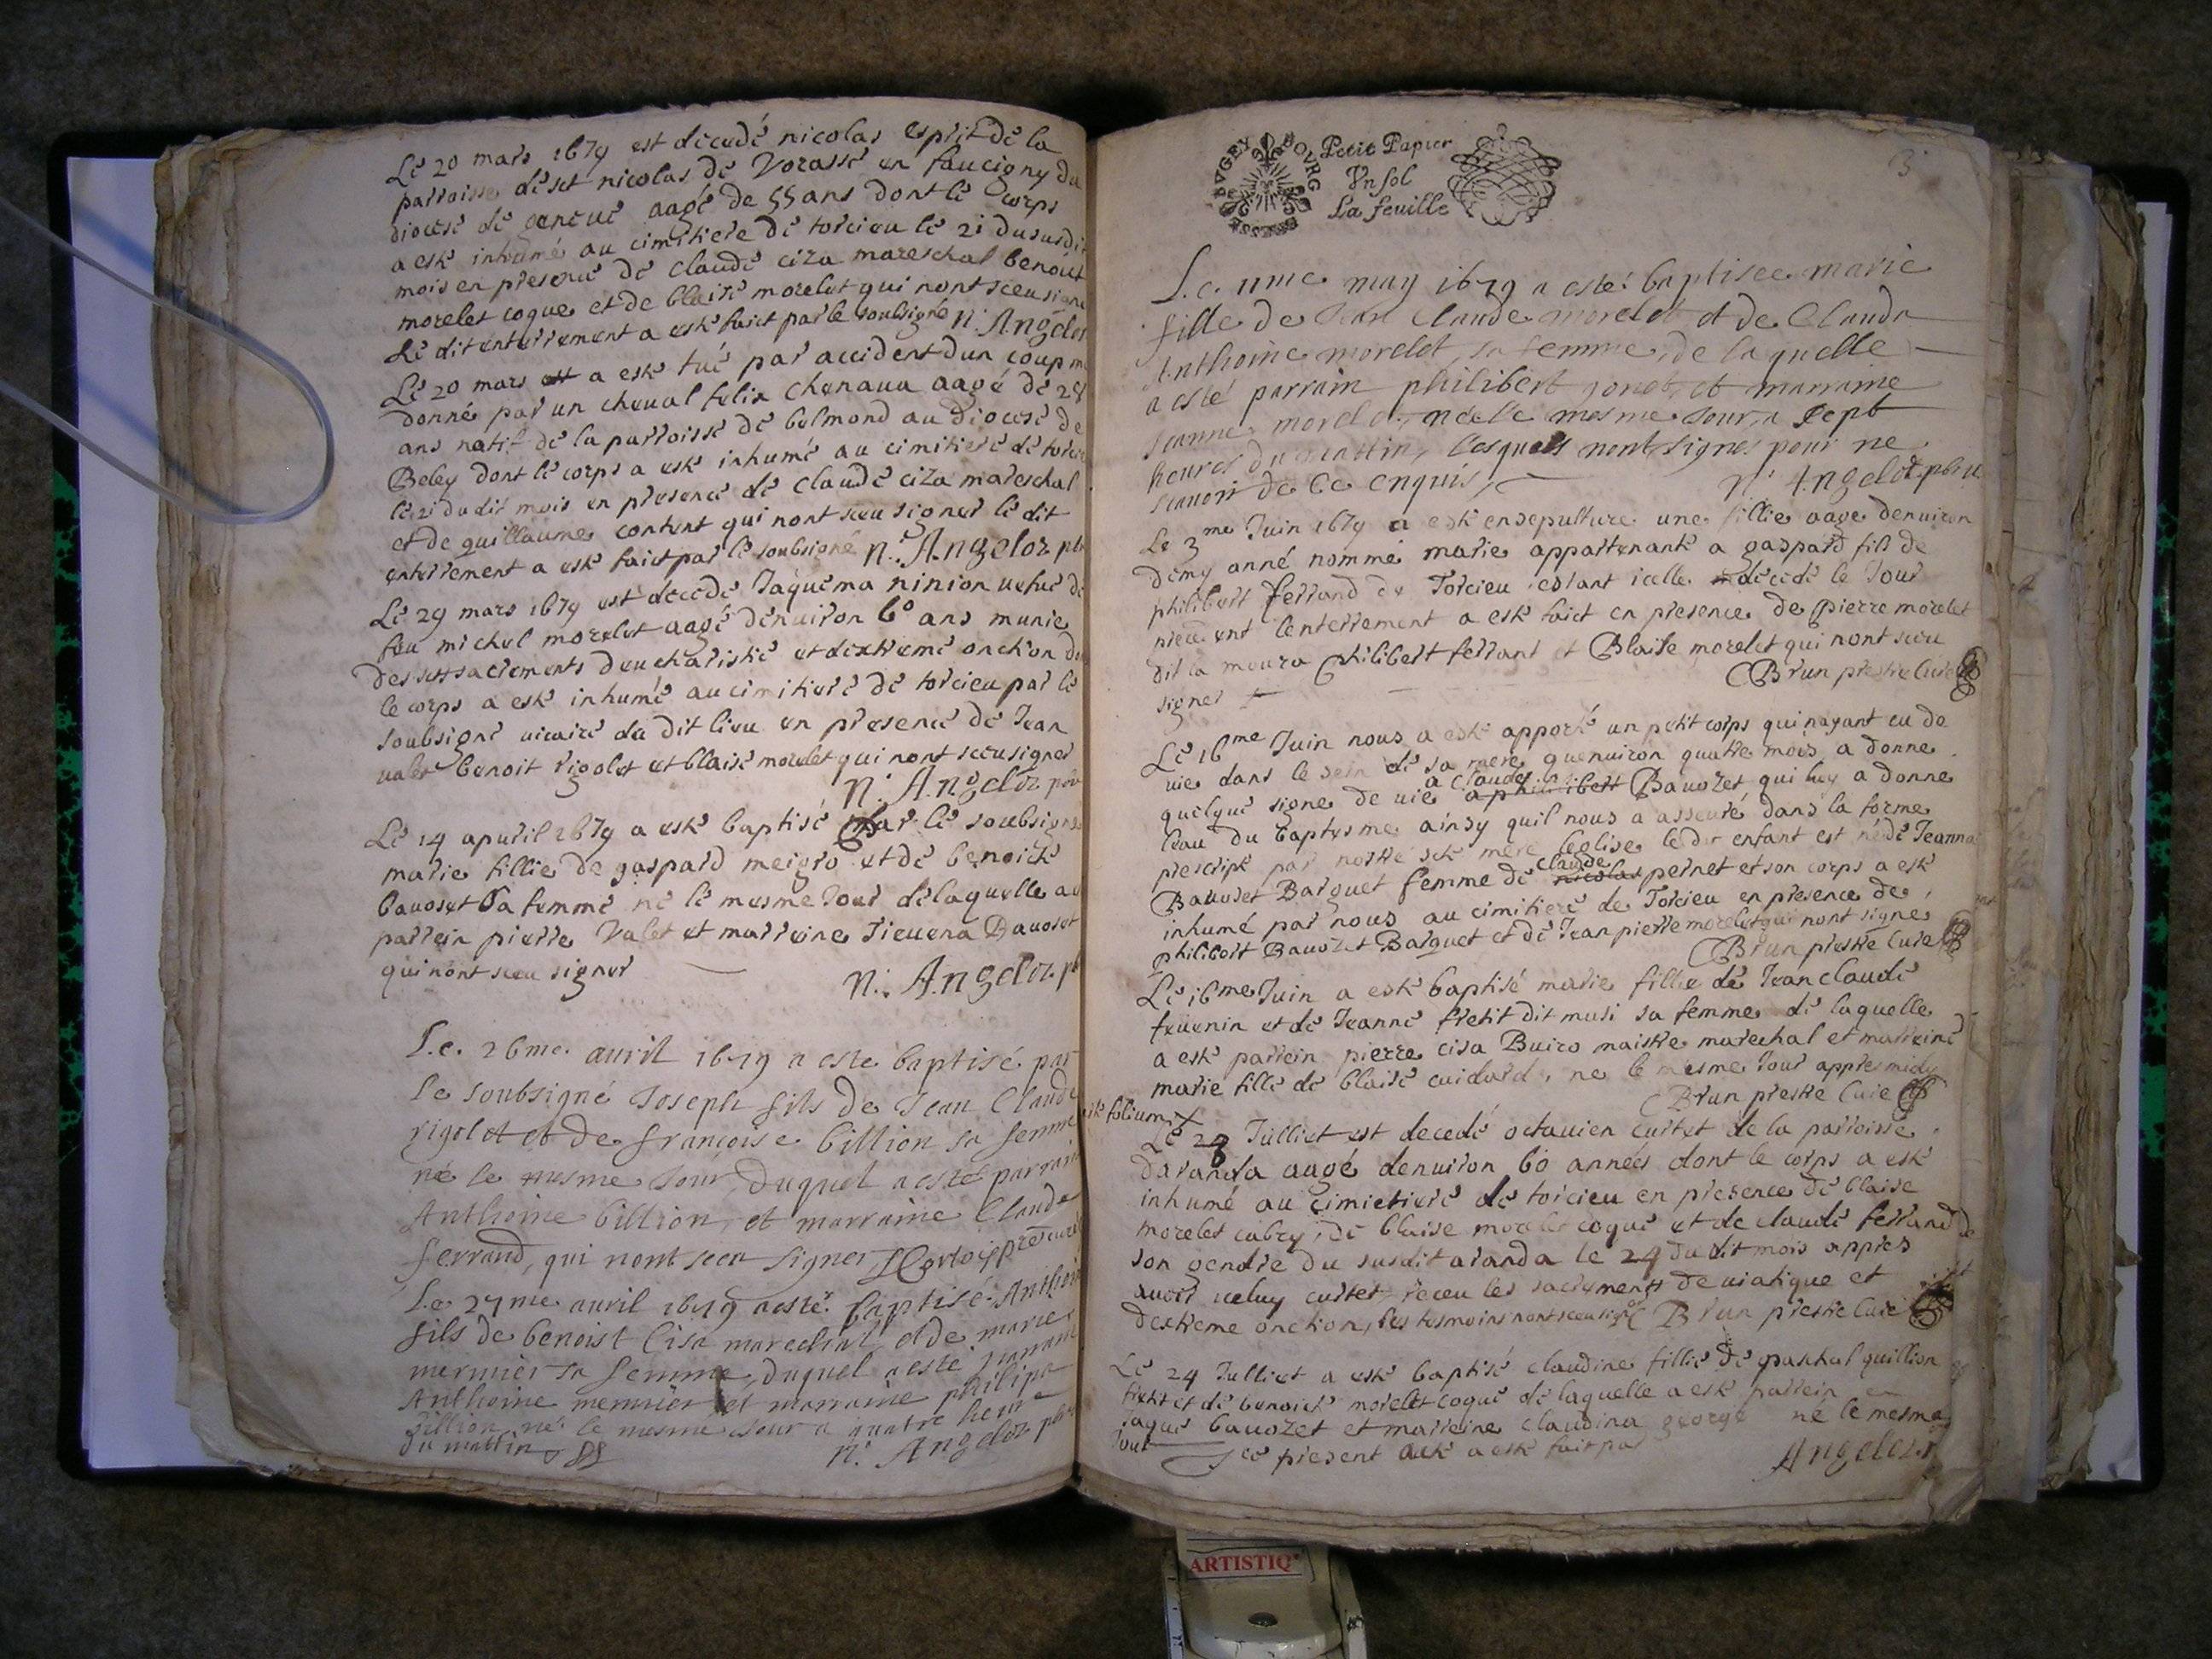 Le 20 mars 1679 est décedé nicolas esprit de la
parroisse de st nicolas de Vorasse en faucigny du
diocese de geneue aagé de 55 ans dont le corps
a esté inhumé au cimitiere de torcieu le 21 dususdit
mois en presence de claude ciza mareschal benoict
morelet coque et de blaise morelet qui nont sceu signe
Le dit enterrement a esté faict par le soubsigné n. Angeloz
Le 20 mars a esté tué par accident dun coup
donné par un cheual felix chenaua aagé de 28
ans natif de la parroisse de belmond au diocese de
Beley dont le corps a esté inhumé au cimitiere de torcieu
le 21 du dit mois en presence de claude ciza mareschal
et de guillaume content qui nont sceu signer le dit
enterrement a esté faict par le soubsigné n. Angeloz pbr
Le 29 mars 1679 est decedé Jaquema ninion uefue de
feu michel morelet aagé denuiron 60 ans munie
des sts sacrements deucharistie et dextreme onction
le corps a esté inhumé au cimitiere de torcieu par le
soubsigné uicaire du dit lieu en presence de Jean
ualet benoit rigolet et blaise morelet qui nont sceu signer
n. Angeloz pbr
Le 14 apuril 1679 a esté baptisé par le soubsigné
marie fillie de gaspard meigro et de benoicte
bauoset sa femme né le mesme Jour de laquelle a
parrein pierre Valet et marreine Tieuena Bauoset
qui nont sceu signer n. Angeloz pb
Le 26me auril 1679 a esté baptisé par
le soubsigné Joseph fils de Jean Claude
rigolet et de françoise billion sa femme
né le mesme Jour, duquel a esté parrain
Anthoine billion, et marraine Claude
ferrand, qui nont sceu signer,
Le 27me auril 1679 a esté baptisé Anthoine
fils de benoist Cisa marechal et de marie
mermier sa femme, duquel a esté parrain
Anthoine mermier et marraine philipa
billion né le mesme Jour a quatre heure
du mattin n. Angeloz pbr
BVGEY BOVRG
Petit Papier
Vn sol
La feuille
3
Le 11me may 1679 a esté baptisee marie
fille de Jean Claude morelot et de Clauda
Anthoine morelot, sa femme, de laquelle
a esté parrain philibert gonet, et marraine
Jeanne morelot, née le mesme Jour, a sept
heures du mattin, lesquels nont signes pour ne
scauoir de ce enquis, n. Angeloz pbre
Le 3me Juin 1679 a esté ensepulture une fillie aage denuiron
demy anné nommé marie appartenant a gaspard fils de
philibert ferrand de Torcieu estant icelle decedé le Jour
present lenterrement a esté faict en presence de pierre morelet
dit la moura philibert ferrant et Blaise morelet qui nont sceu
signer Brun prestre Curé
Le 16me Juin nous a esté apporté un petit corps qui nayant eu de
uie dans le sein de sa mere quenuiron quattre mois a donne
quelque signe de uie a philibert a Claude Bauozet qui luy a donne
leau du baptesme ainsy quil nous a asseuré dans la forme
prescript par nostre ste mere leglise le dt enfant est né de Jeanna
Bauozet Barquet femme de nicolas claude pernet et son corps a esté
inhumé par nous au cimitiere de Torcieu en presence de
philibert Bauozet Barquet et de Jean pierre morelet qui nont signe
Brun prestre Curé
Le 16me Juin a esté baptisé marie fillie de Jean claude
teuenin et de Jeanne fretit dit musi sa femme de laquelle
a esté parrein pierre cisa Buiro maistre marechal et marreine
marie fille de blaise cuidard, ne le mesme Jour appres midy
Brun prestre Curé
folium
Le 23 Julliet est decedé octauien curtet de la parroisse
daranda augé denuiron 60 années dont le corps a esté
inhumé au cimietiere de torcieu en presence de blaise
morelet cabry, de blaise morelet coque et de claude ferrand de
son gendre du susdit aranda le 24 du dit mois appres
auoir iceluy curtet receu les sacrements de uiatique et
dextreme onction, les tesmoins nont sceu signer Brun prestre Curé
Le 24 Julliet a esté baptisé claudine fillie de paschal guillion
fretit et de benoicte morelet coque de laquelle a esté parrein
Jaque bauozet et marreine claudina george né le mesme
Jour Le present acte a esté fait par Angeloz
ARTISTIQ'